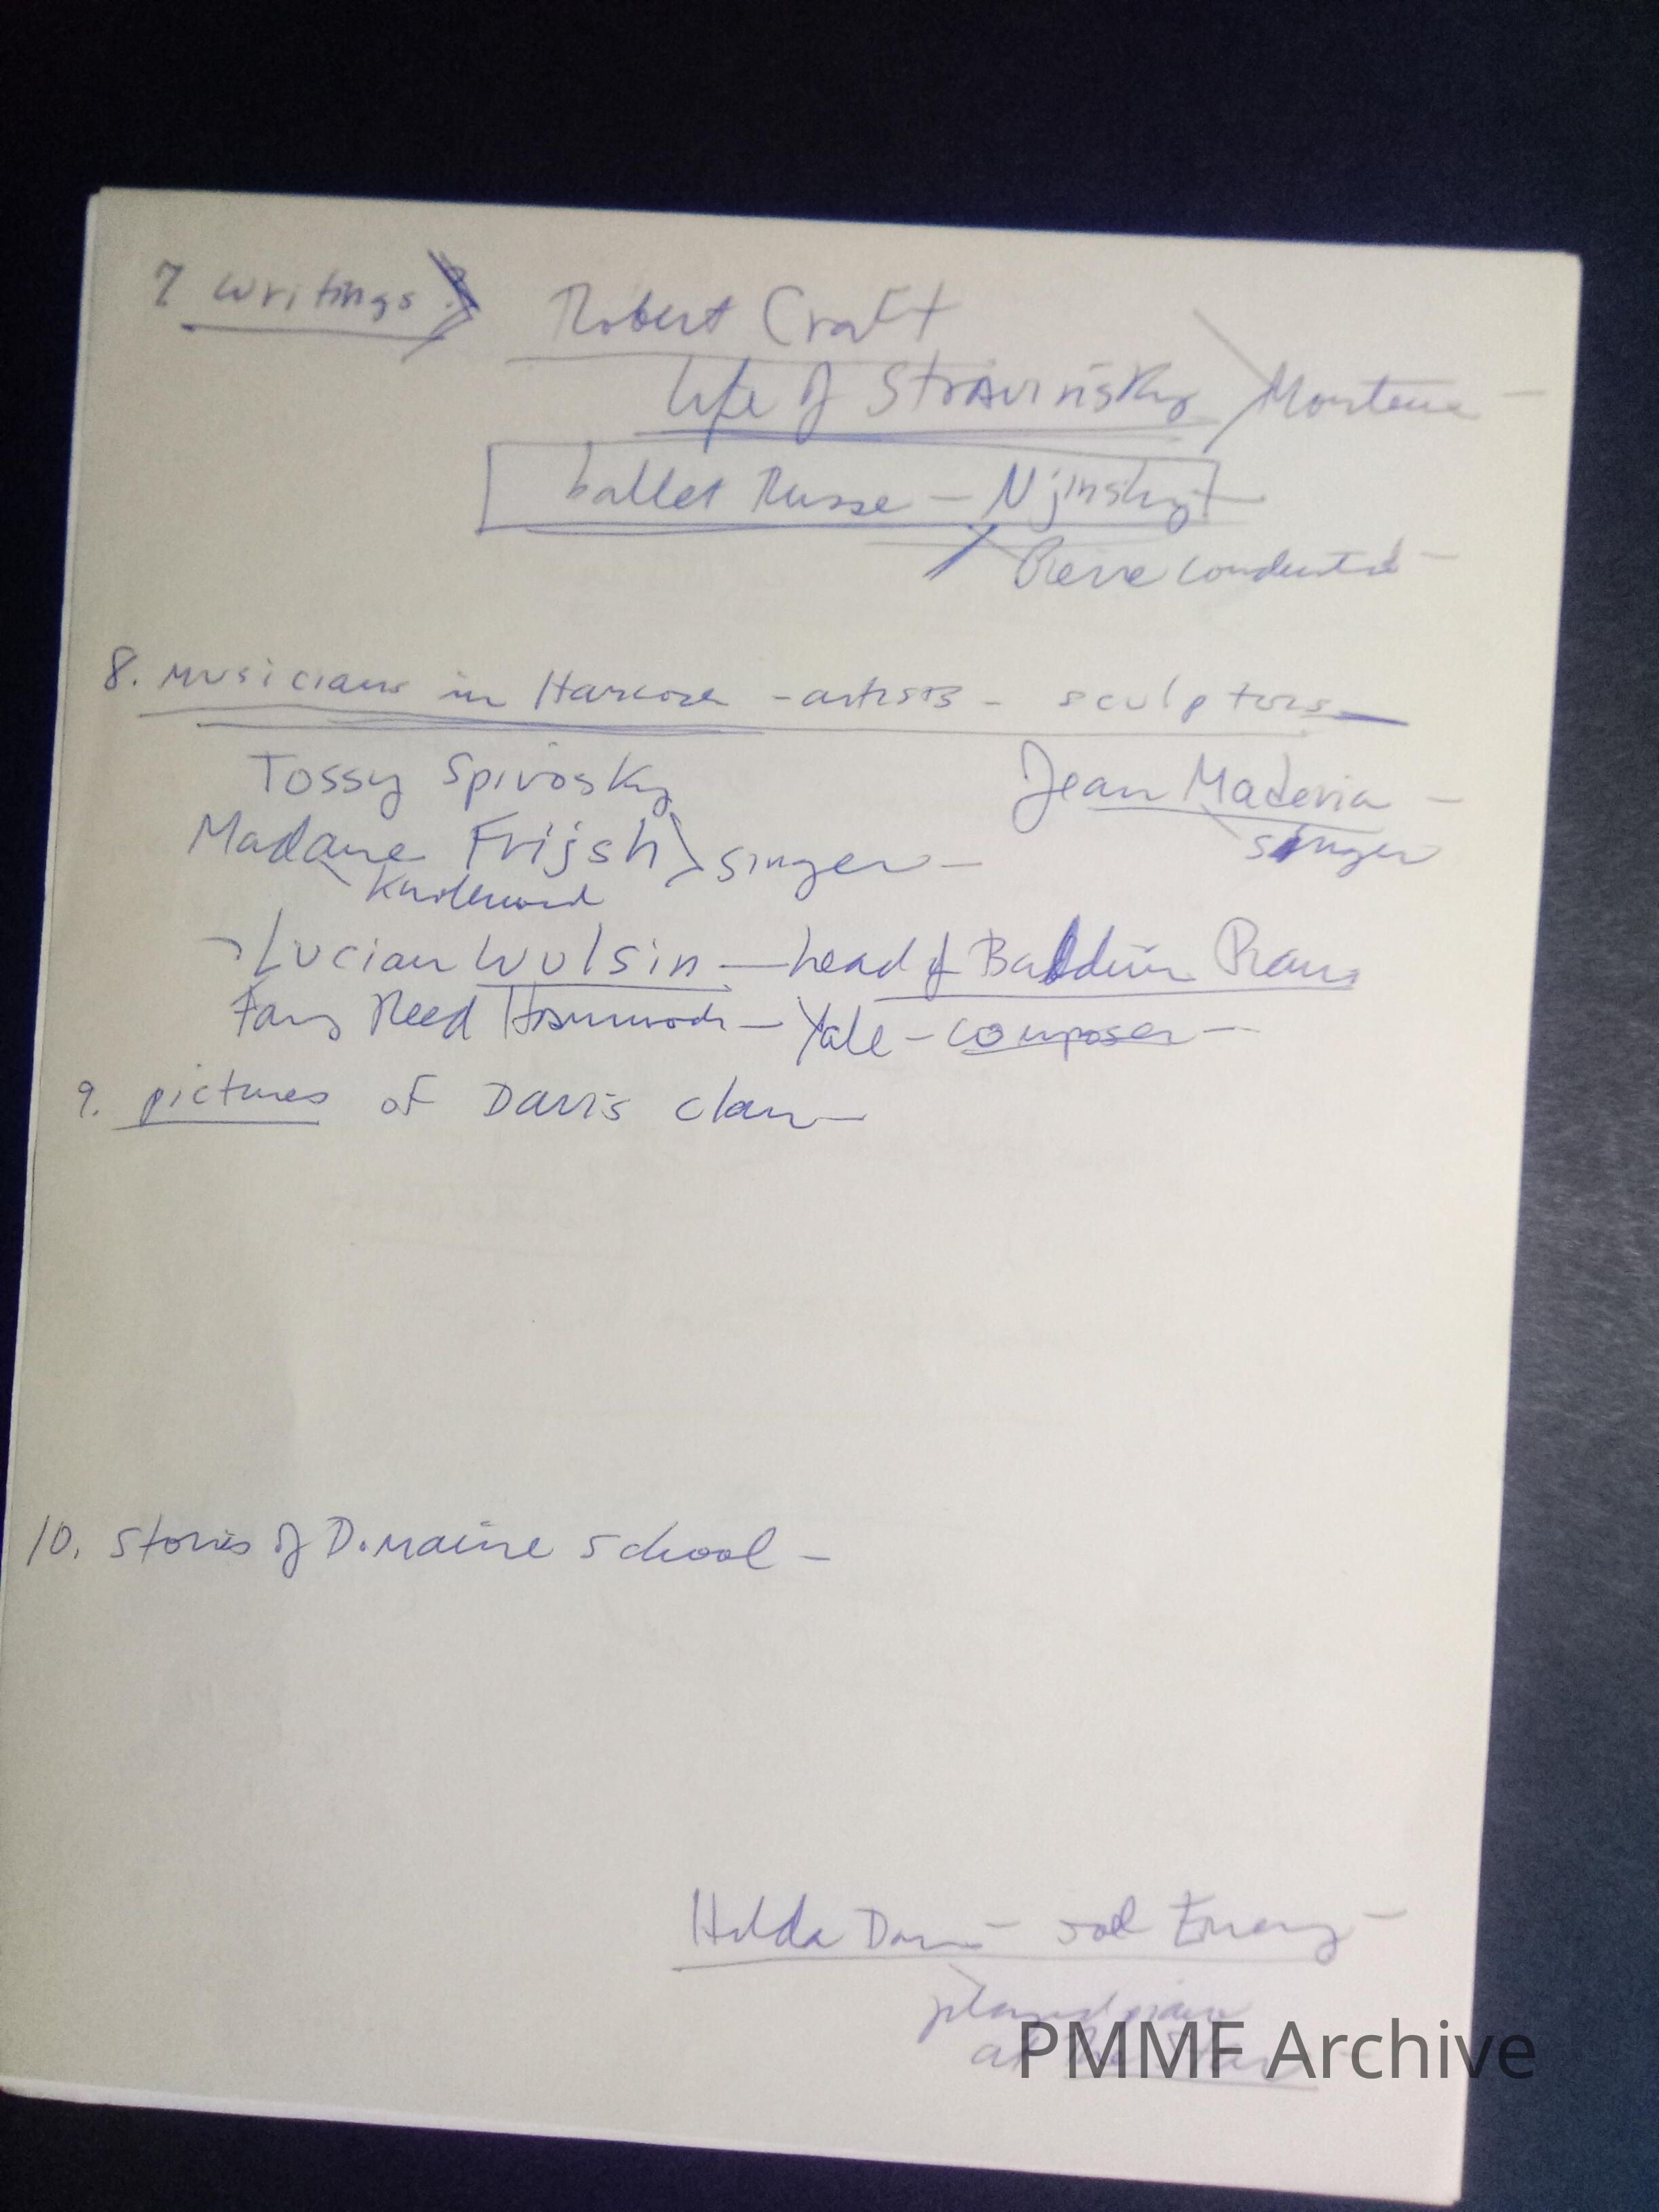 7 writings
Robert Craft
Life of Stravinsky Monteux —
ballet Russe — Njinsky
Pierre conducted —
8. Musicians in Hancock - artists - sculptors
Tossy Spivosky
Jean Maderia —
singer
Madame Frijsh > singer —
Lucian Wulsin — head of Baldwin Piano
Fany Reed Hammond — Yale - composer —
9. pictures of Davis clan —
10. stories of Domaine School —
Hilda Davis — and Energy —
played piano
at the
PMMF Archive